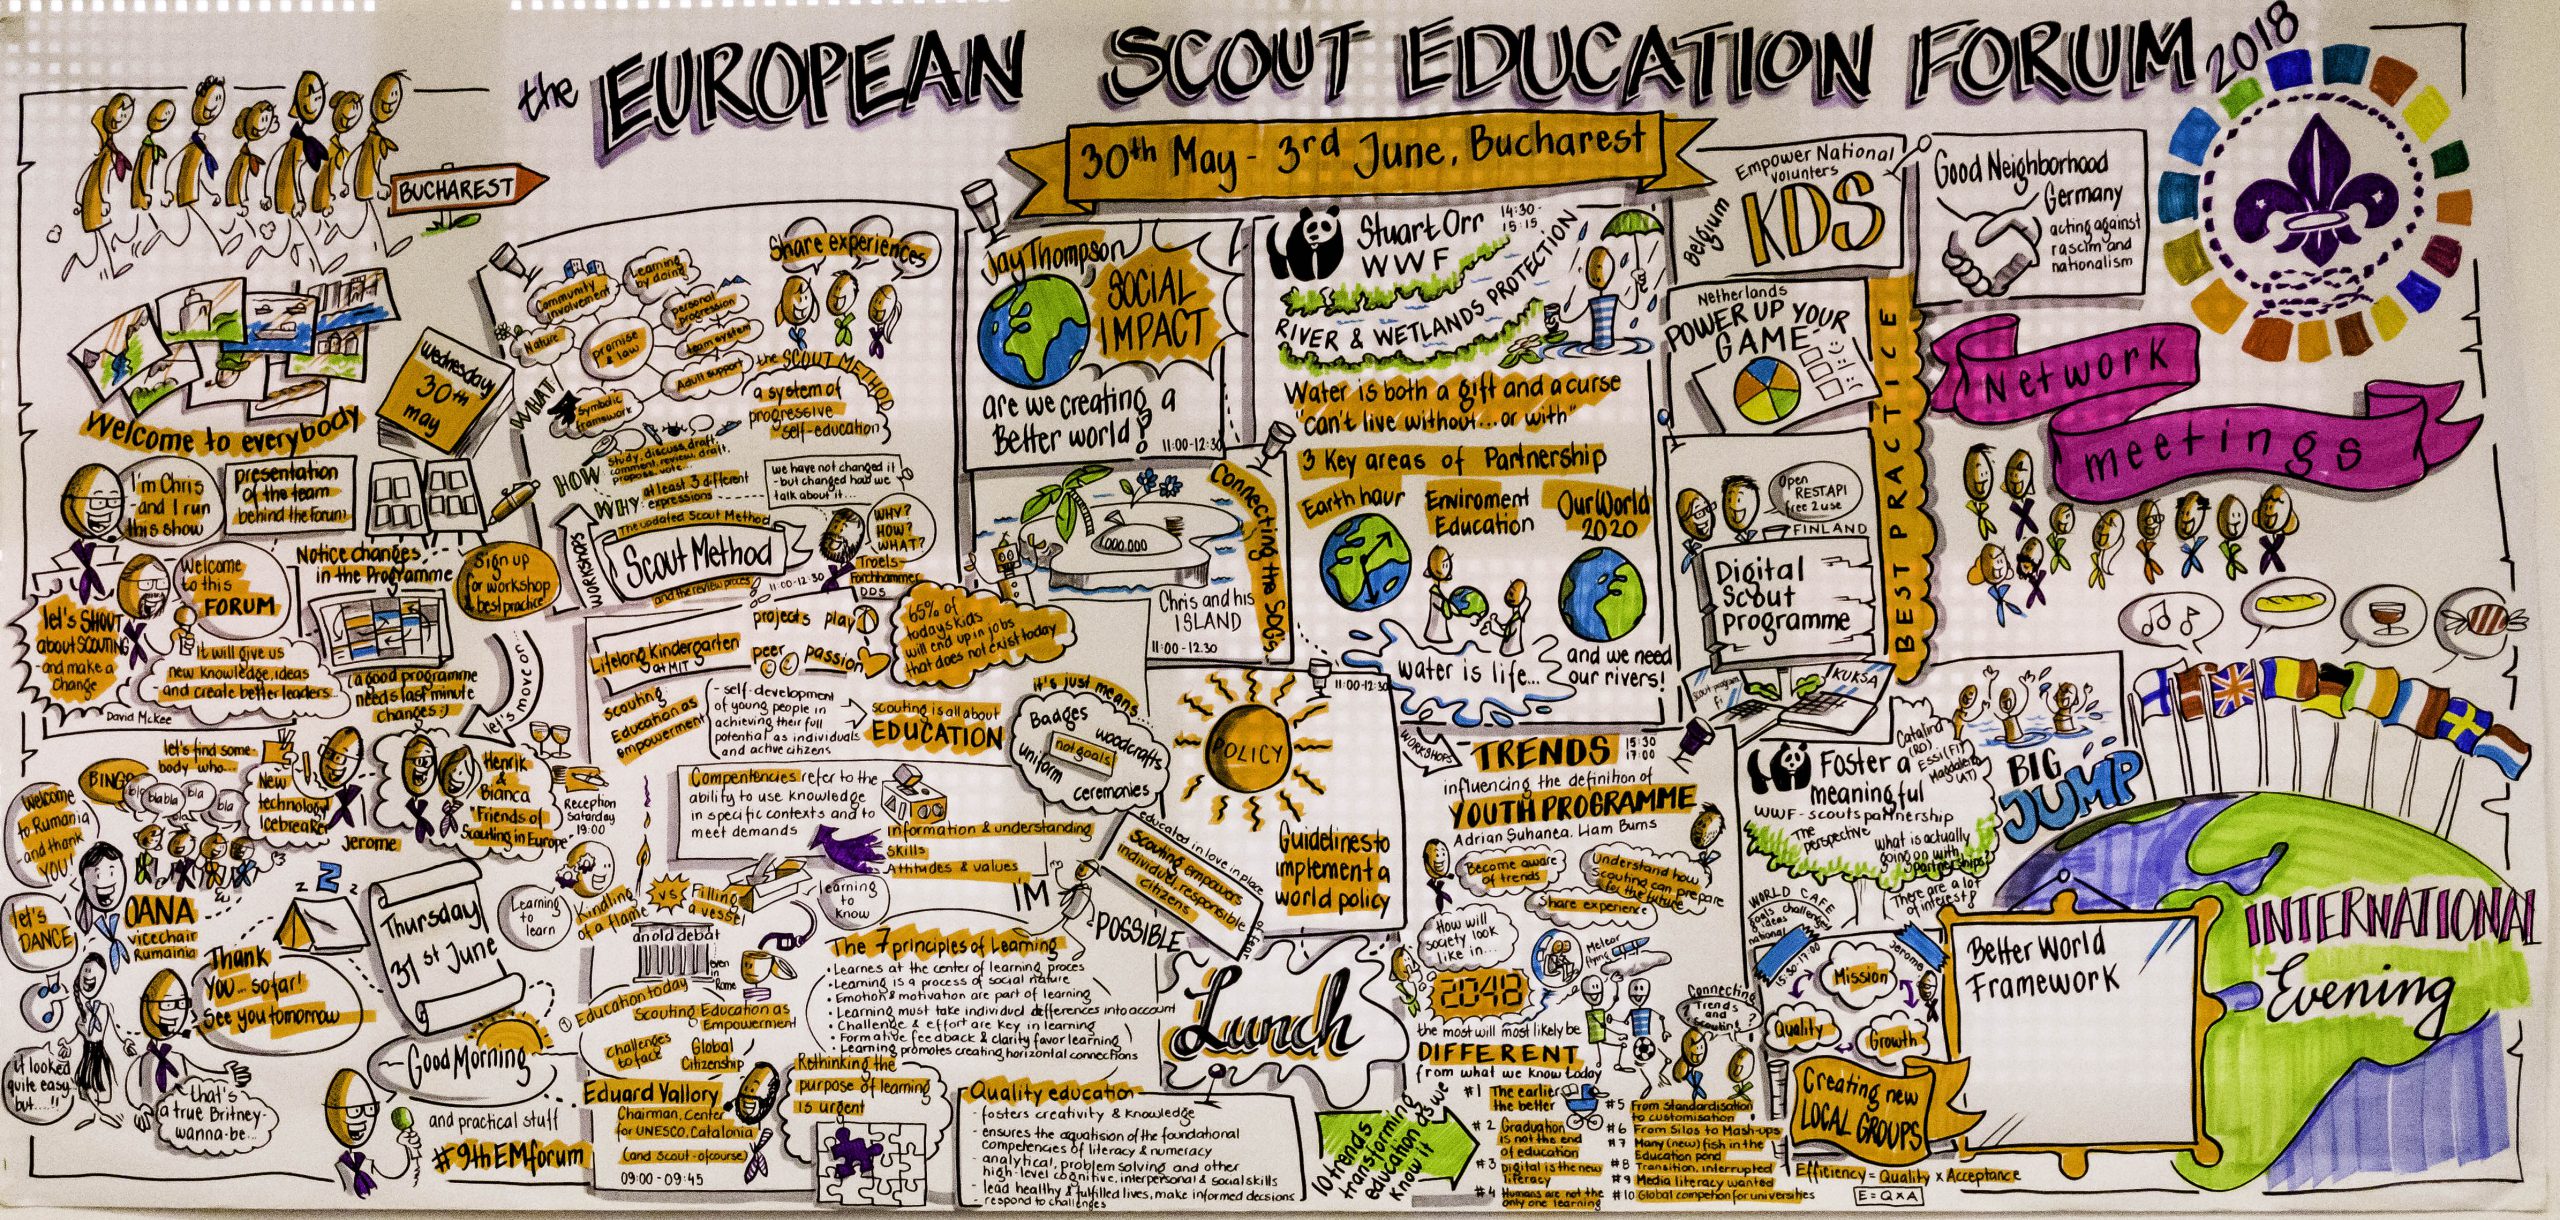 the EUROPEAN SCOUT EDUCATION FORUM 2018
30th May - 3rd June, Bucharest
BUCHAREST
Welcome to everybody
Wednesday
30th
may
I'm Chris
- and I run
this show
presentation
of the team
behind the forum
let's SHOUT
about SCOUTING
- and make a
change
Welcome
to this
FORUM
It will give us
new knowledge, ideas
- and create better leaders...
David McKee
Notice changes
in the Programme
(a good programme
needs last minute
changes :)
Sign up
for workshop
& best practice
let's move on
let's find some-
body who...
BINGO
bla bla
bla
bla
Welcome
to Rumania
and thank
YOU!
let's
DANCE
OANA
vicechair
Rumainia
New
technology
Icebreaker
Jerome
Henrik
&
Bianca
"Friends of
Scouting in Europe"
Reception
Satarday
19:00
Thank
You... so far!
See you tomorrow
it looked
quite easy..
but....!!
that's
a true Britney-
wanna-be...
z z Z
Thursday
31st June
Good Morning
and practical stuff
#9thEMforum
WHAT
Community
involvement
Learning
by doing
personal
progression
Nature
promise
& law
team system
Adult support
Symbolic
framework
Share experiences
the SCOUT METHOD
a system of
progressive
self-education
HOW
Study, discuss, draft,
comment, review, draft,
propose, vote...
WHY
at least 3 different
expressions
we have not changed it
- but changed how we
talk about it...
WORKSHOPS
The updated Scout Method
Scout Method
and the review proces
11:00-12:30
WHY?
HOW?
WHAT?
Troels-
Forchhammer
DDS
Lifelong Kindergarten
at MIT
projects
play
peer
passion
65% of
todays kids
will end up in jobs
that does not exist today
Scouting
Education as
empowerment
- self-development
of young people in
achieving their full
potential as individuals
and active citizens
scouting is all about
EDUCATION
it's just means...
Badges
woodcrafts
not goals!
uniform
ceremonies
Compentencies refer to the
ability to use knowledge
in specific contexts and to
meet demands
Information & understanding
Skills
Attitudes & values
educated in love in place
of fear
Scouting empowers
individual, responsible
citizens
I'M
POSSIBLE
Learning
to learn
Kindling
of a flame
VS
Filling
a vessel
learning
to know
an old debat
even
in
Rome
The 7 principles of Learning
• Learnes at the center of learning proces
• Learning is a process of social nature
• Emotion & motivation are part of learning
• Learning must take individuel differences into account
• Challenge & effort are key in learning
• Formative feedback & clarity favor learning
• Learning promotes creating horizontal connections
Education today
Scouting Education as
Empowerment
challenges
to face
Global
Citizenship
Eduard Vallory
Chairman, Center
for UNESCO, Catalonia
(and scout-of course)
09:00 - 09:45
Rethinking the
purpose of learning
is urgent
Quality education
- fosters creativity & knowledge
- ensures the aquatision of the foundational
competencies of literacy & numeracy
- analytical, problem solving and other
high-level cognitive, interpersonal & social skills
- lead healthy & fulfilled lives, make informed decsions
- respond to challenges
Jay Thompson
SOCIAL
IMPACT
are we creating a
Better world?
11:00-12:30
Connecting the SDG's
000.000
Chris and his
ISLAND
11:00-12.30
POLICY
11:00-12:30
Guidelines to
implement a
world policy
Lunch
Stuart Orr
WWF
14:30-
15:15
RIVER & WETLANDS PROTECTION
Water is both a gift and a curse
"can't live without... or with"
3 Key areas of Partnership
Earth hour
Enviroment
Education
Our World
2020
water is life...
and we need
our rivers!
WORKSHOPS
TRENDS
15:30
17:00
influencing the definition of
YOUTH PROGRAMME
Adrian Suhanea. Liam Burns
Become aware
of trends
Understand how
Scouting can prepare
for the future
Share experience
How will
society look
like in...
2048
Meteor
flying
Connecting
Trends
and
scouting?
the most will most likely be
DIFFERENT
from what we know today
10 trends
transforming
education as we
know it
#1 The earlier
the better
#2 Graduation
is not the end
of education
#3 Digital is the new
literacy
#4 Humans are not the
only one learning
#5 From standardisation
to customisation
#6 From Silos to Mash-ups
#7 Many (new) fish in the
Education pond
#8 Transition, interrupted
#9 Media literacy wanted
#10 Global competion for universities
Empower National
volunters
KDS
Belgium
Good Neighborhood
Germany
acting against
rascim and
nationalism
Netherlands
POWER UP YOUR
GAME
BEST PRACTICE
Open
RESTAPI
free 2 use
FINLAND
Digital
Scout
programme
Scout program
KUKSA
Network
meetings
Foster a
meaningful
WWF - scouts partnership
Catalina
(RO)
ESSI (FI)
Magdalena
(AT)
The
perspective
What is actually
going on with
partnerships?
There are a lot
of interest!
BIG
JUMP
WORLD CAFE
goals challenges
& ideas
national
15:30-17:00
Jerome
Mission
Quality
Growth
Creating new
LOCAL GROUPS
Efficiency = Quality x Acceptance
E = Q x A
Better World
Framework
INTERNATIONAL
Evening